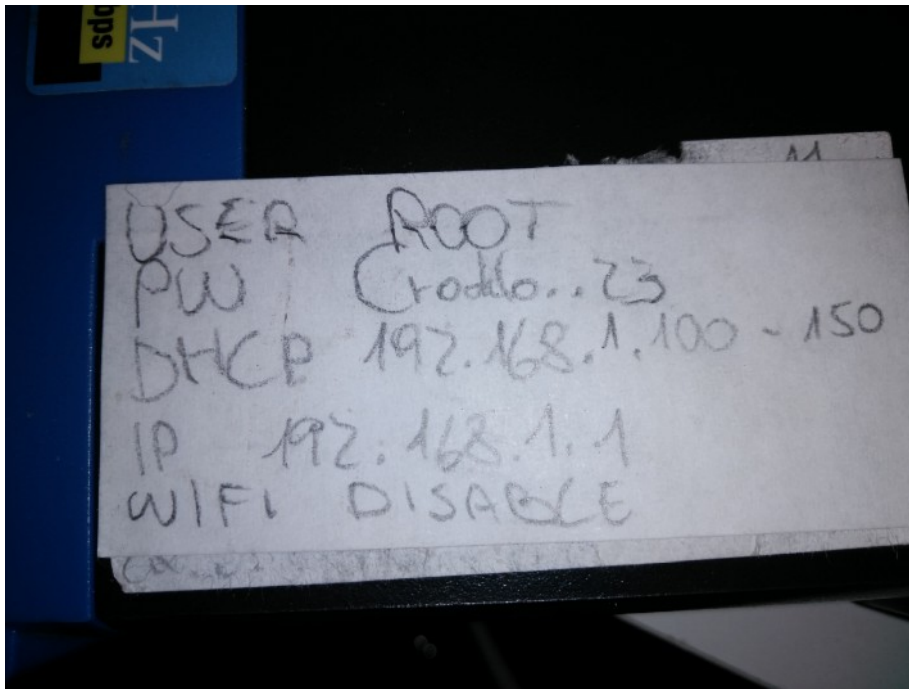 ps
Hz
11
USER ROOT
PW Croddo..23
DHCP 192.168.1.100 - 150
IP 192.168.1.1
WIFI DISABLE